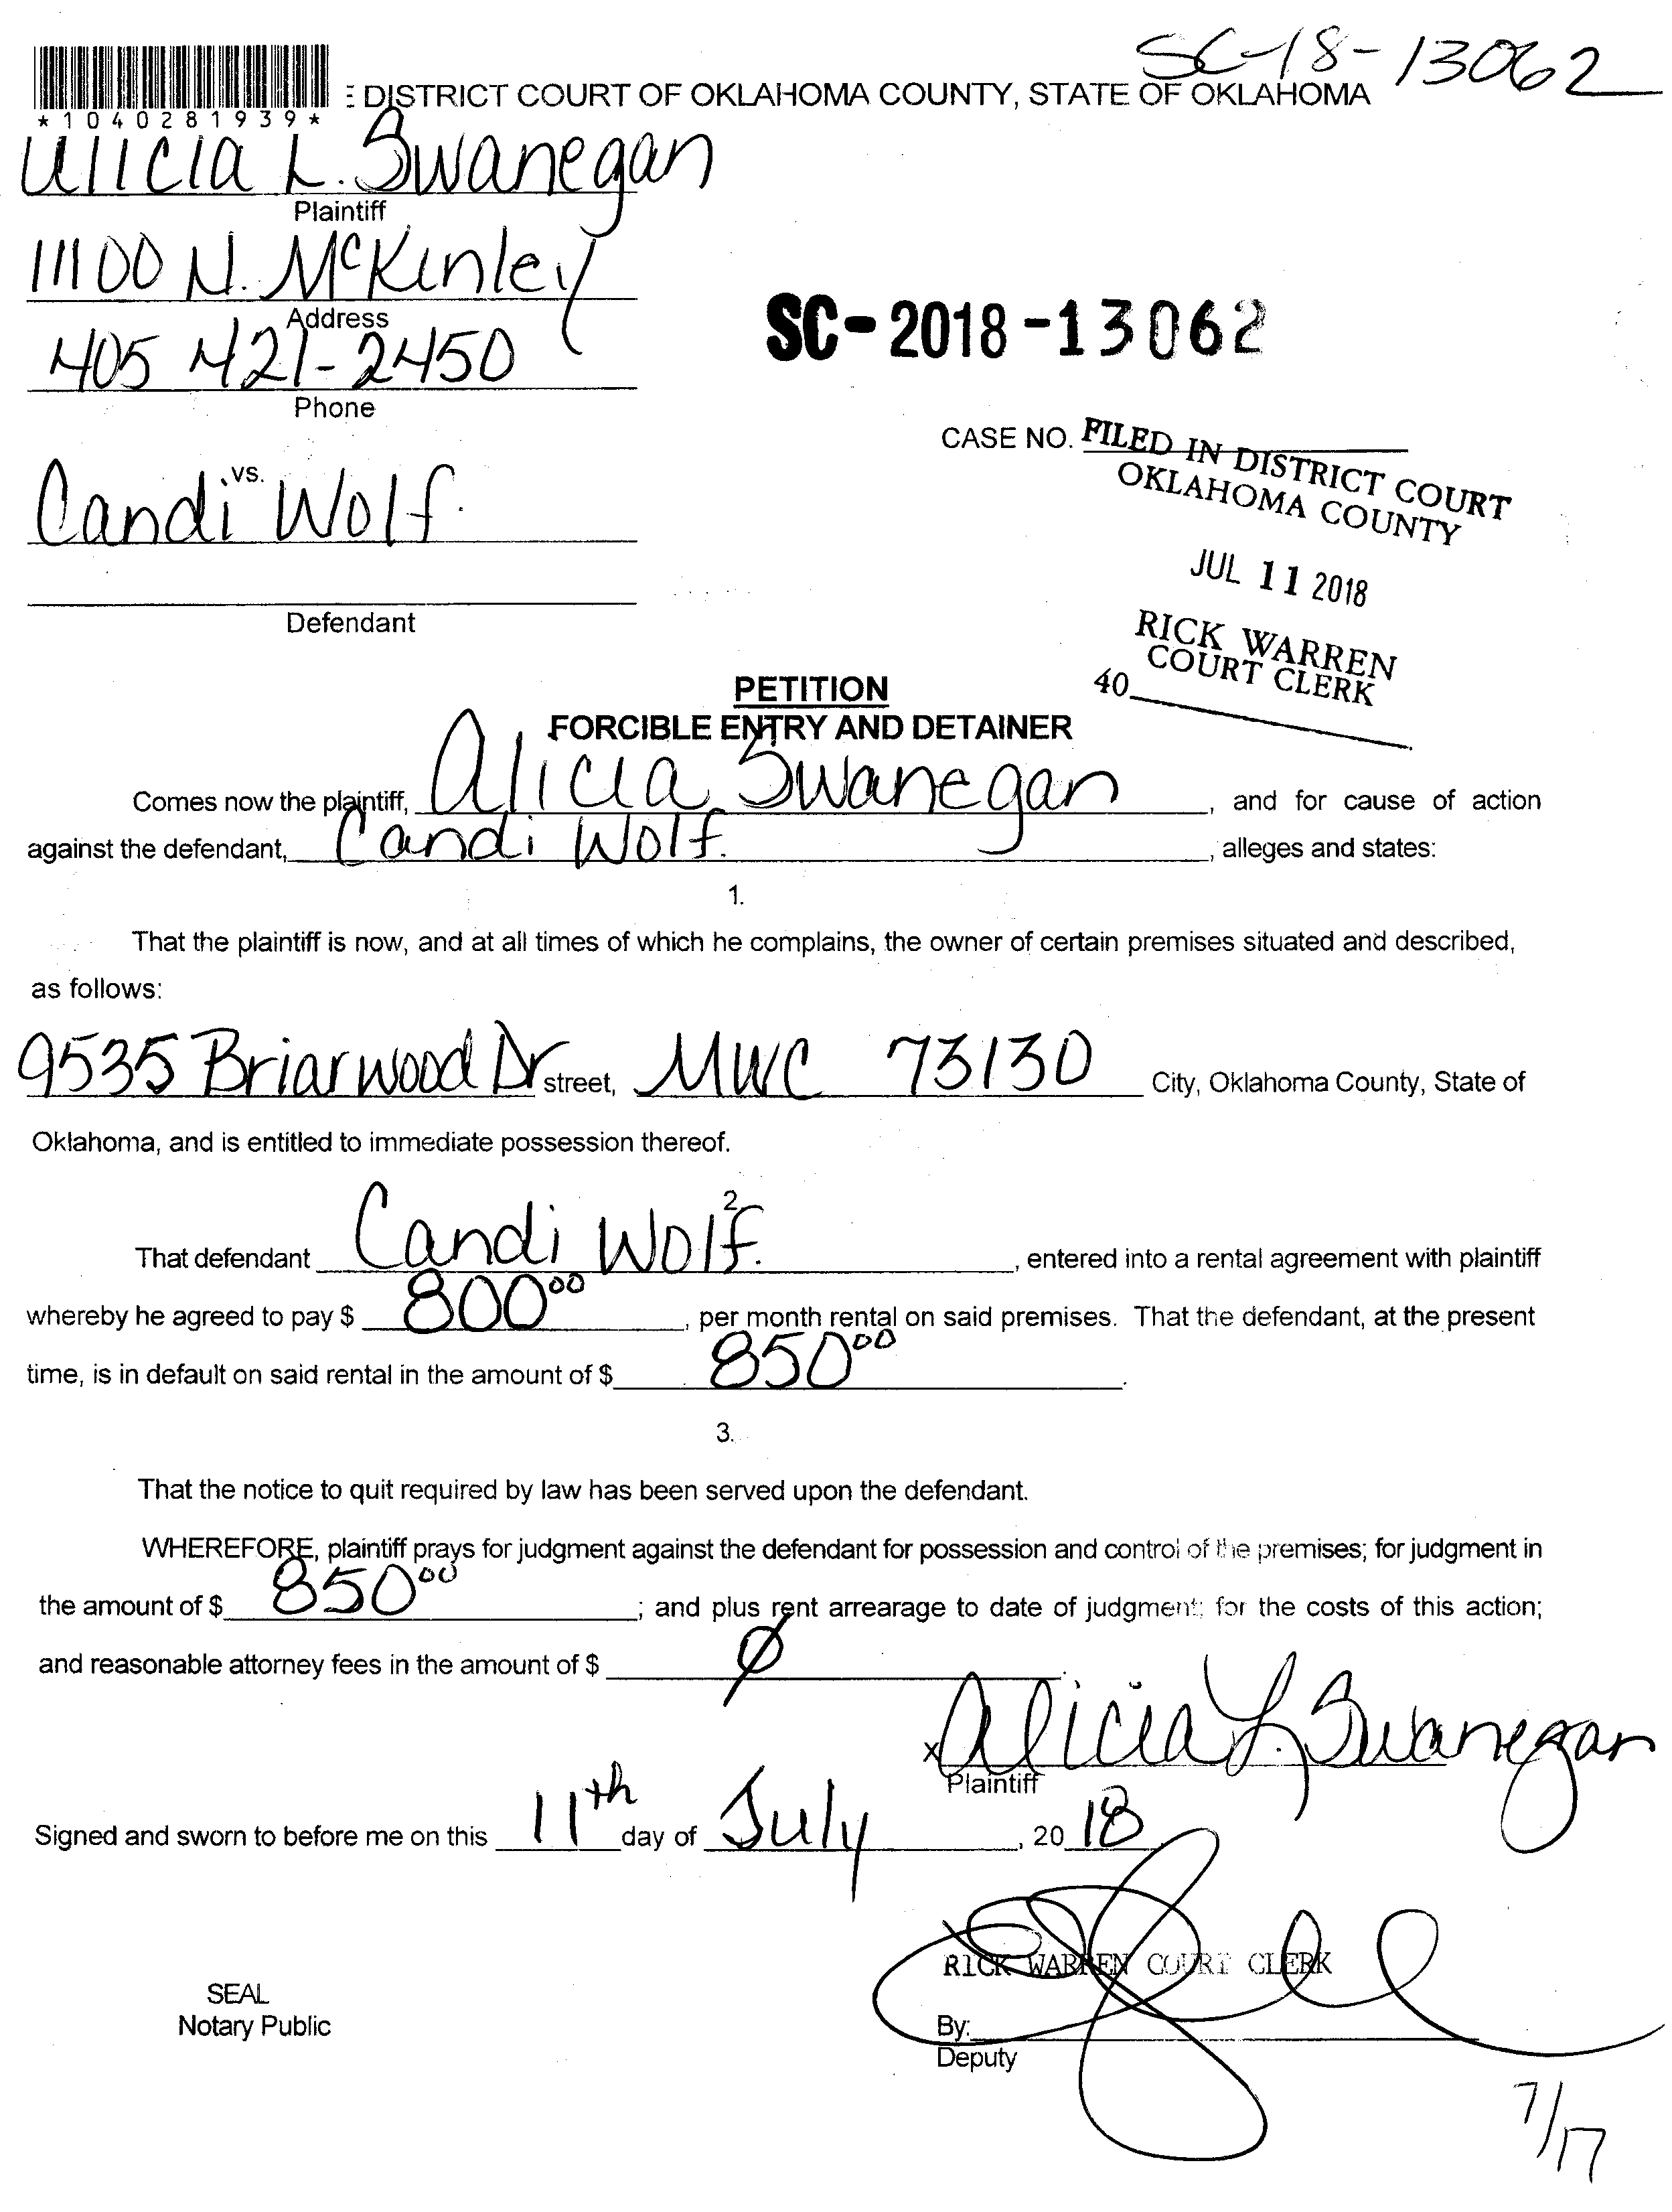 SC-18-13062
E DISTRICT COURT OF OKLAHOMA COUNTY, STATE OF OKLAHOMA
*1040281939*
Alicia L. Swanegan
Plaintiff
11100 N. McKinley
Address
405 421-2450
Phone
SC-2018-13062
CASE NO.
FILED IN DISTRICT COURT
OKLAHOMA COUNTY
JUL 11 2018
RICK WARREN
COURT CLERK
40
vs.
Candi Wolf.
Defendant
PETITION
FORCIBLE ENTRY AND DETAINER
Comes now the plaintiff, Alicia Swanegan, and for cause of action
against the defendant, Candi Wolf., alleges and states:
1.
That the plaintiff is now, and at all times of which he complains, the owner of certain premises situated and described,
as follows:
9535 Briarwood Dr street, MWC 73130 City, Oklahoma County, State of
Oklahoma, and is entitled to immediate possession thereof.
2.
That defendant Candi Wolf., entered into a rental agreement with plaintiff
whereby he agreed to pay $ 800 00, per month rental on said premises. That the defendant, at the present
time, is in default on said rental in the amount of $ 850 00.
3.
That the notice to quit required by law has been served upon the defendant.
WHEREFORE, plaintiff prays for judgment against the defendant for possession and control of the premises; for judgment in
the amount of $ 850 00; and plus rent arrearage to date of judgment; for the costs of this action;
and reasonable attorney fees in the amount of $ Ø.
x Alicia L. Swanegan
Plaintiff
Signed and sworn to before me on this 11th day of July, 20 18
RICK WARREN COURT CLERK
SEAL
Notary Public
By:
Deputy
7/17